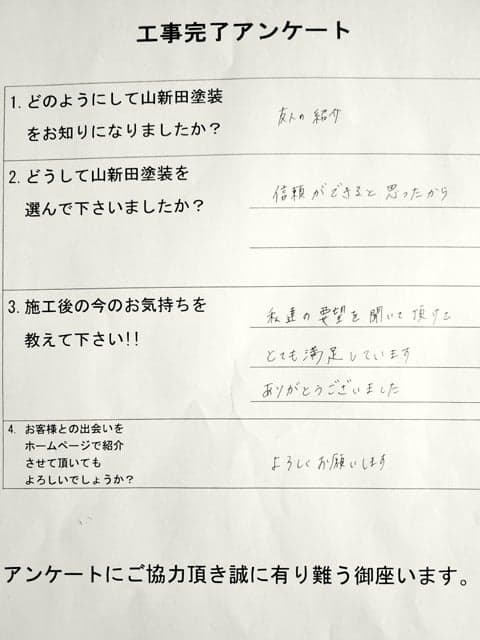 工事完了アンケート
1. どのようにして山新田塗装
をお知りになりましたか？
友人の紹介
2. どうして山新田塗装を
選んで下さいましたか？
信頼ができると思ったから
3. 施工後の今のお気持ちを
教えて下さい!!
私達の要望を聞いて頂けて
とても満足しています
ありがとうございました
4. お客様との出会いを
ホームページで紹介
させて頂いても
よろしいでしょうか？
よろしくお願いします
アンケートにご協力頂き誠に有り難う御座います。